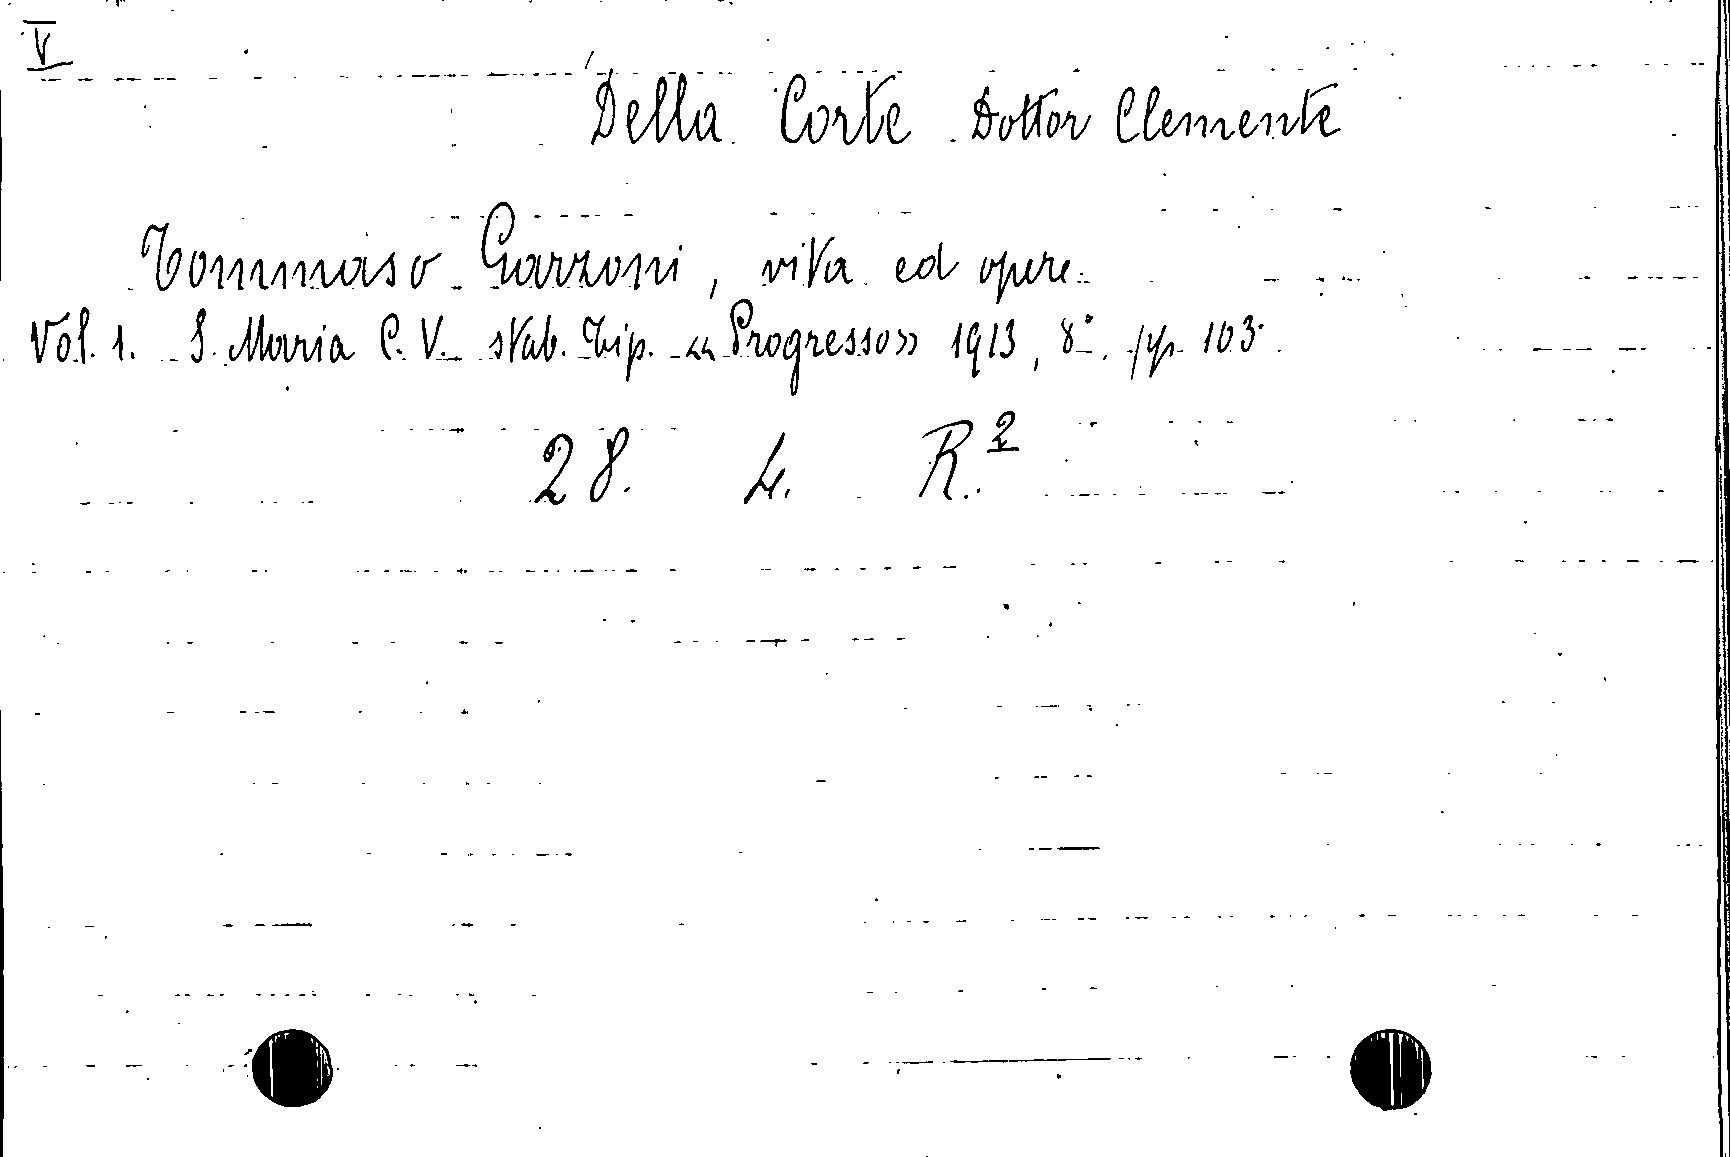 V
Della Corte Dottor Clemente
Tommaso Garzoni, vita ed opere.
Vol. 1. S. Maria C. V. stab. tip. «Progresso» 1913, 8°. pp. 103.
28. 4. R.2